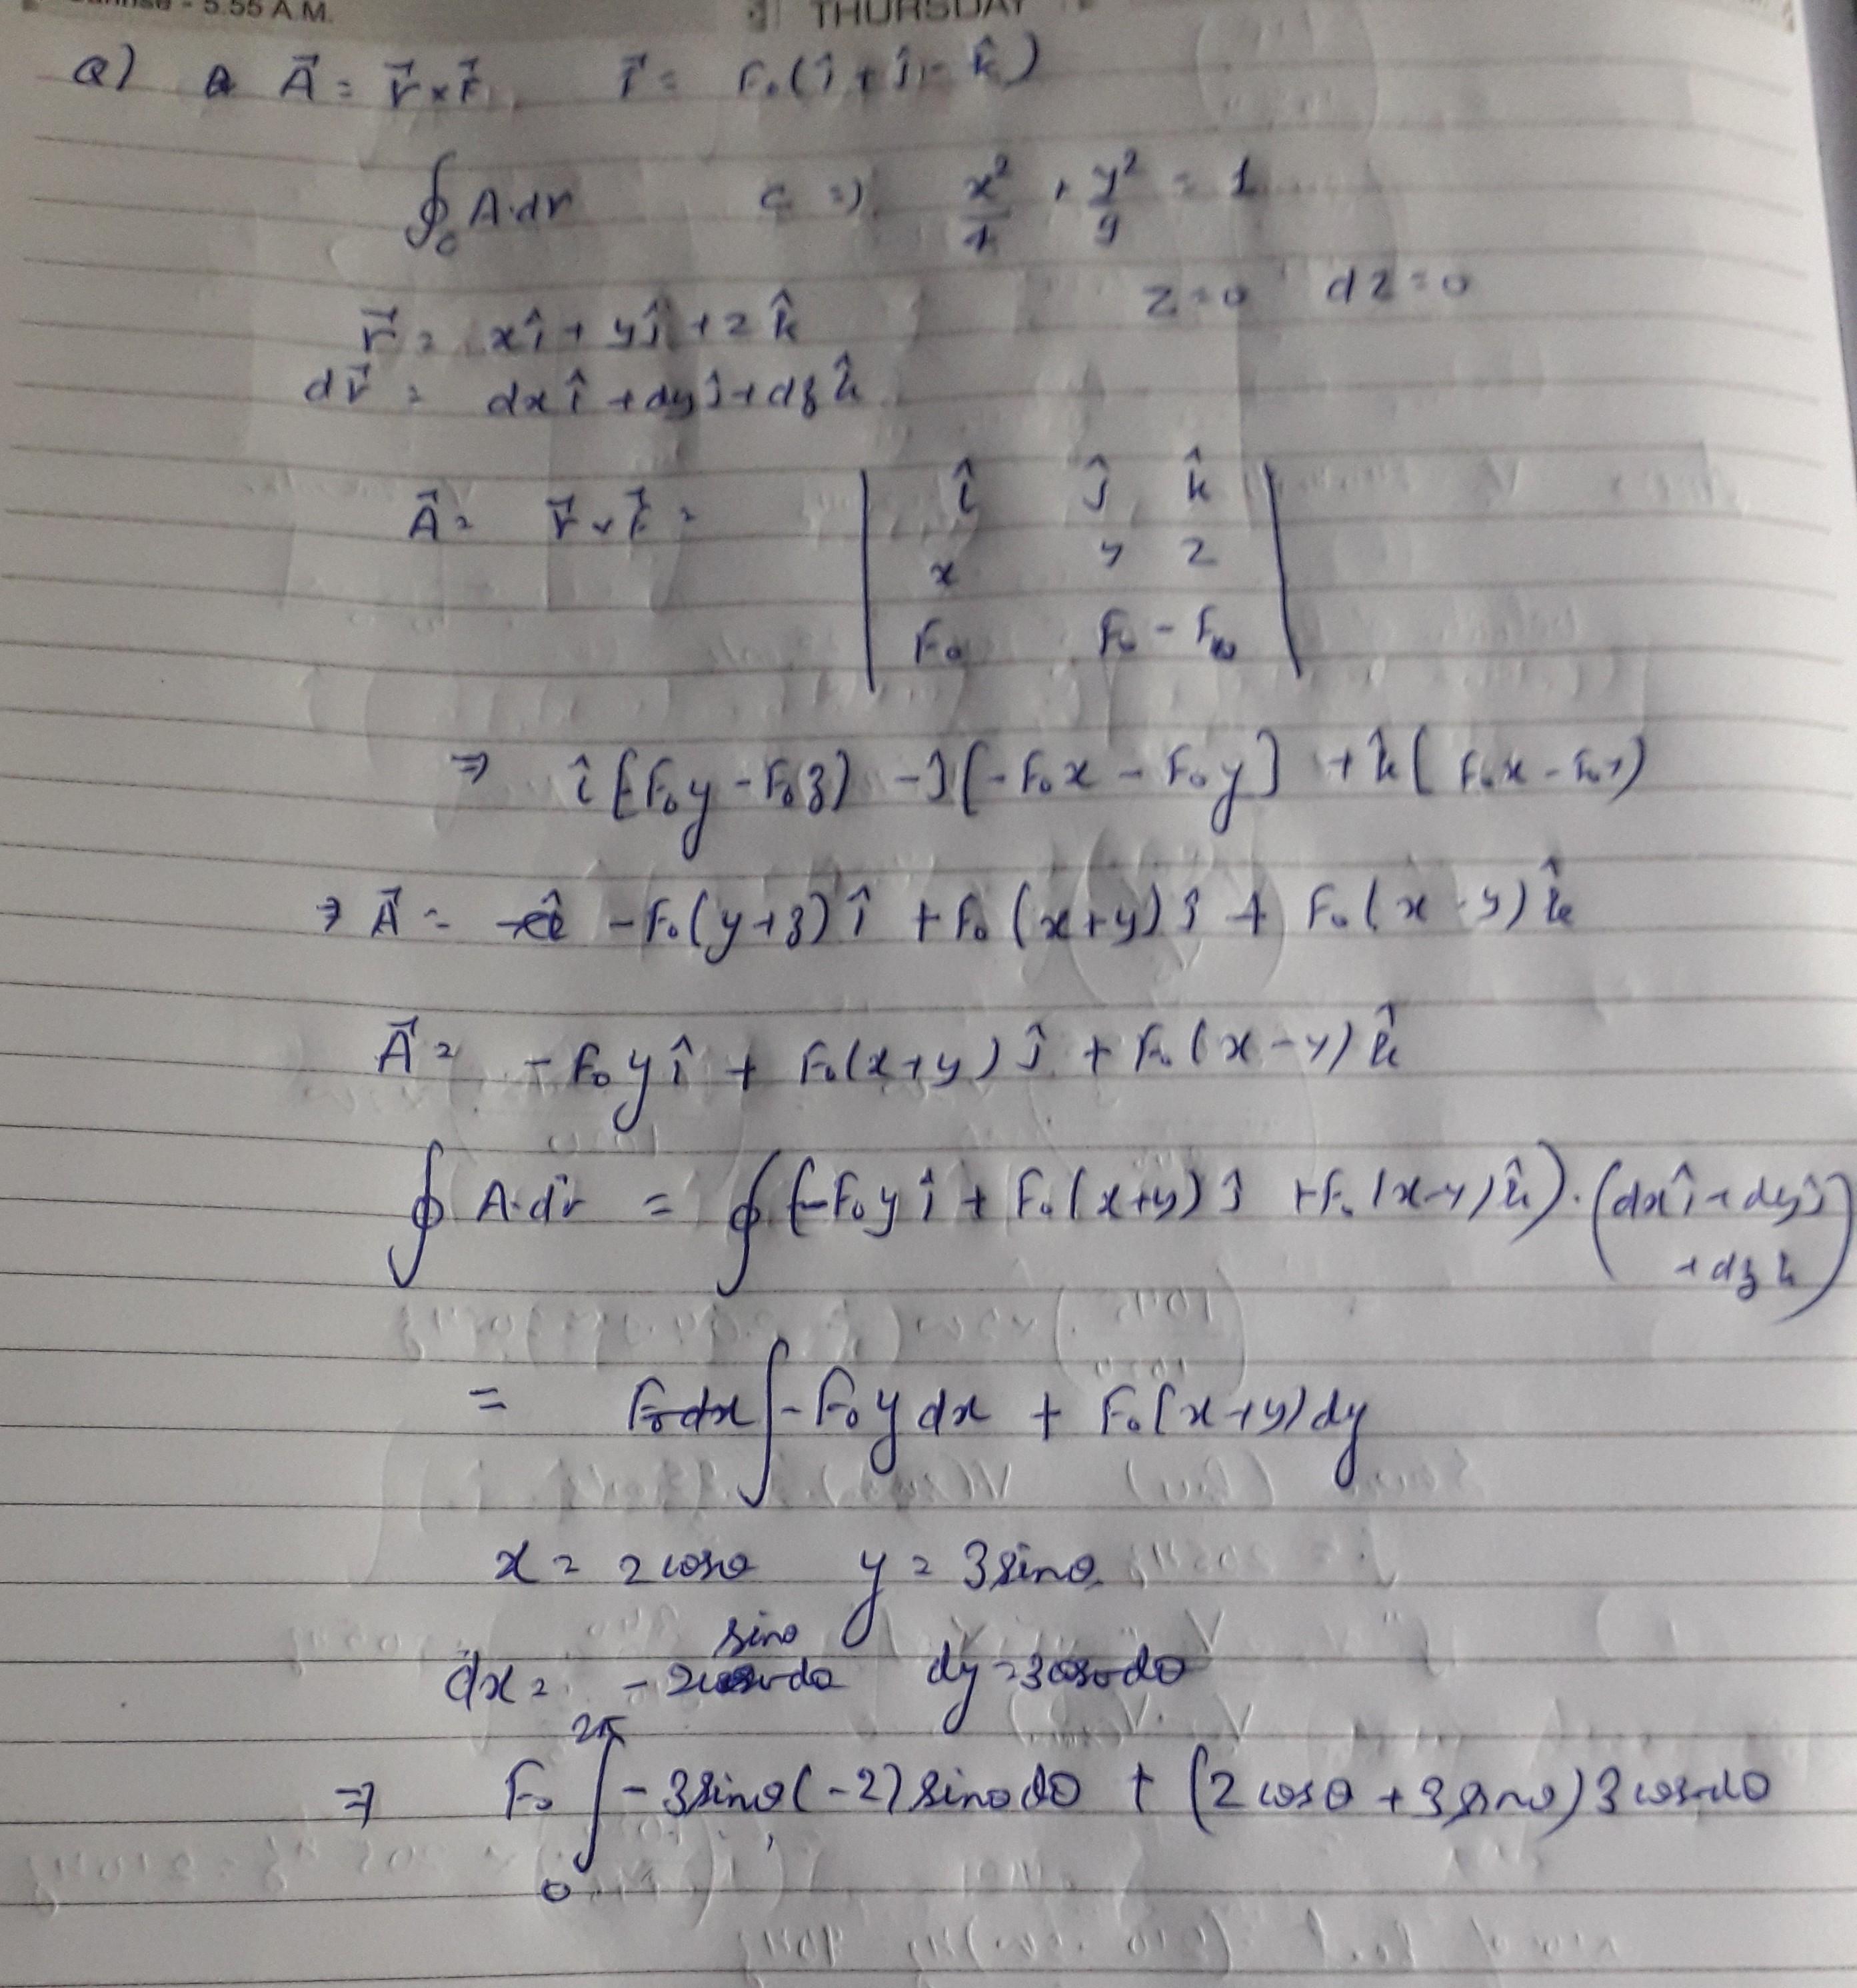 - 5.55 A.M.
THURSDAY
Q) A⃗ = r⃗ × F⃗, F⃗ = F₀(î + ĵ - k̂)
∮c A·dr C ⇒ x²/4 + y²/9 = 1
z = 0 dz = 0
r⃗ = xî + yĵ + zk̂
dr⃗ = dxî + dyĵ + dzk̂
A⃗ = r⃗ × F⃗ = | î ĵ k̂ |
| x y z |
| F₀ F₀ -F₀ |
⇒ î[-F₀y - F₀z) - ĵ[-F₀x - F₀y] + k̂(F₀x - F₀y)
⇒ A⃗ = -F₀(y+z)î + F₀(x+y)ĵ + F₀(x-y)k̂
A⃗ = -F₀yî + F₀(x+y)ĵ + F₀(x-y)k̂
∮ A·dr = ∮(-F₀yî + F₀(x+y)ĵ + F₀(x-y)k̂)·(dxî + dyĵ
+ dzk)
= F₀dx ∫-F₀ydx + F₀(x+y)dy
x = 2cosθ y = 3sinθ
sinθ
dx = -2 dθ dy = 3cosθdθ
⇒ F₀ ∫₀^2π -3sinθ(-2)sinθdθ + (2cosθ + 3sinθ)3cosθdθ